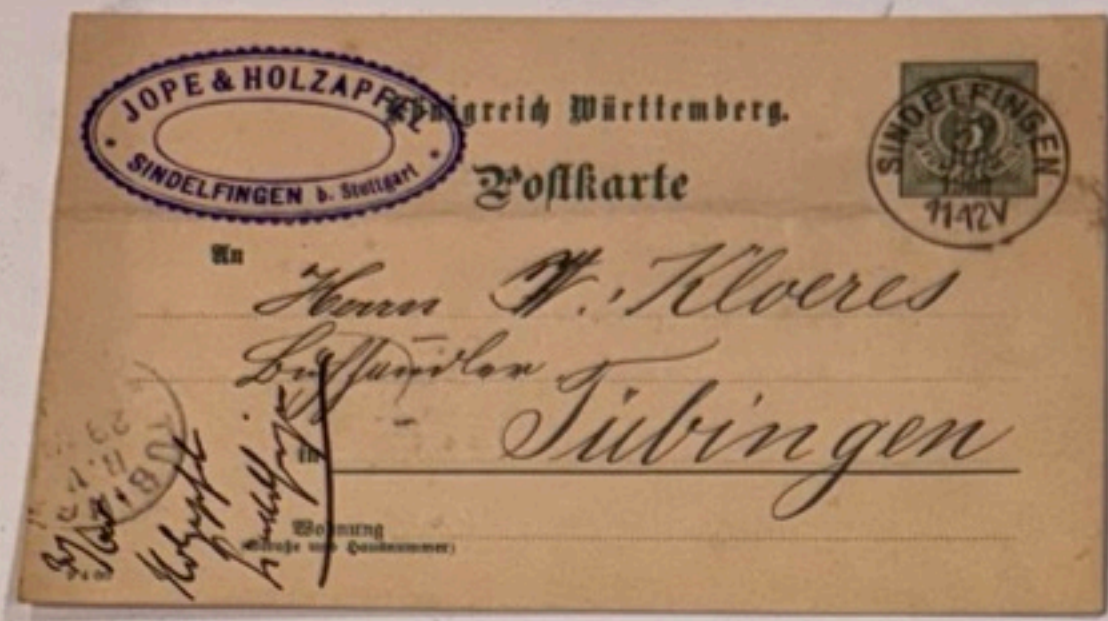 JOPE & HOLZAPFEL
SINDELFINGEN b. Stuttgart
Königreich Württemberg.
Postkarte
SINDELFINGEN
5
11-12V
An
Herrn W. Kloeres
Buchhändler
Tübingen
in
Wohnung
(Straße und Hausnummer)
TÜBI
Holzapfel
Sindelfingen